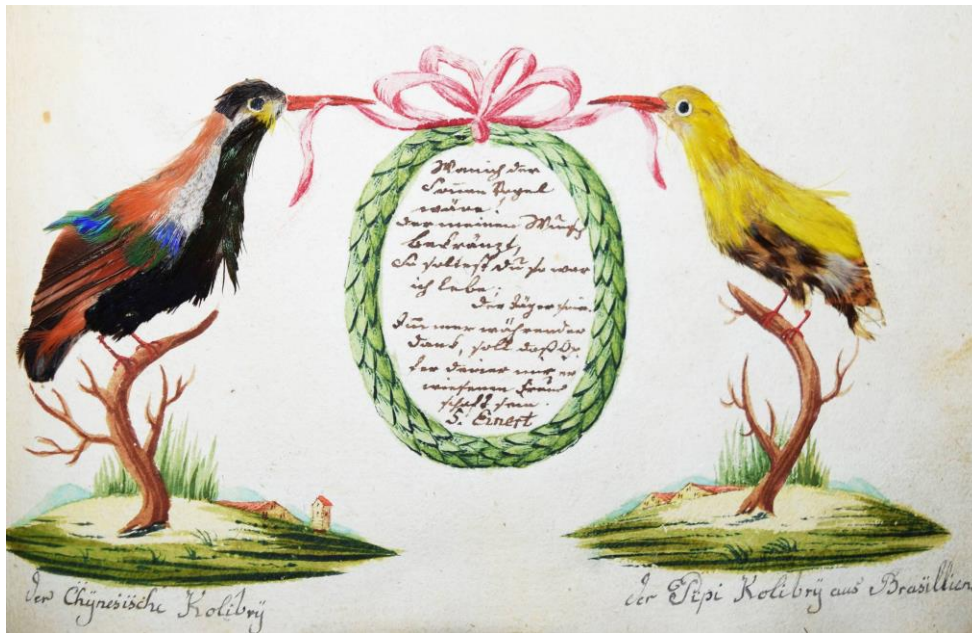 Wan ich der
Sonen Vogel
wäre!
der meinen Wunsch
bekränzt,
So soltest du so war
ich lebe;
der Jäger sein.
Immer währender
dank, soll daß Op
fer deiner mir er
wiesenen Freund
schaft sein.
S. Ernest
der Chÿnesische Kolibrÿ
der Pipi Kolibrÿ aus Brasillien